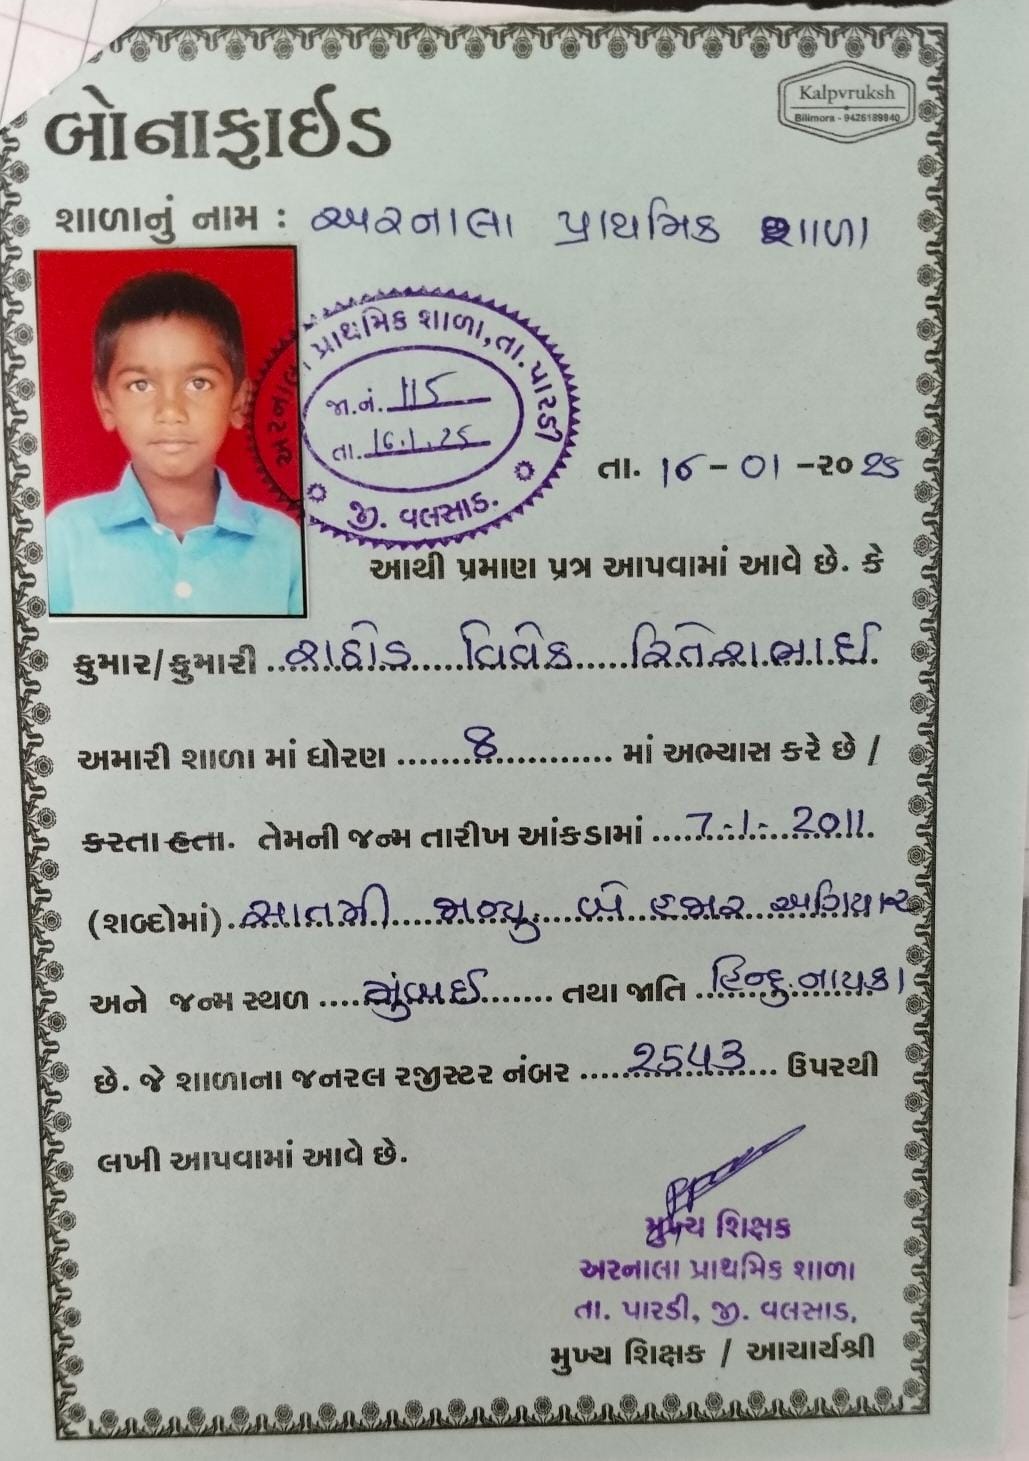 Kalpvruksh
Bilimora - 9426189840
બોનાફાઈડ
શાળાનું નામ : અરનાલા પ્રાથમિક શાળા
અરનાલા પ્રાથમિક શાળા, તા. પારડી
જા.નં. 115
તા. 16.1.25
જી. વલસાડ.
તા. 16 - 01 - ૨૦ 25
આથી પ્રમાણ પત્ર આપવામાં આવે છે. કે
કુમાર/કુમારી રાઠોડ વિવેક રિતેશભાઈ
અમારી શાળા માં ધોરણ 8 માં અભ્યાસ કરે છે /
કરતા હતા. તેમની જન્મ તારીખ આંકડામાં 7-1-2011.
(શબ્દોમાં) સાતમી જાન્યુ. બે હજાર અગિયાર
અને જન્મ સ્થળ મુંબઈ તથા જાતિ હિન્દુ નાયકા
છે. જે શાળાના જનરલ રજીસ્ટર નંબર 2543 ઉપરથી
લખી આપવામાં આવે છે.
મુખ્ય શિક્ષક
અરનાલા પ્રાથમિક શાળા
તા. પારડી, જી. વલસાડ.
મુખ્ય શિક્ષક / આચાર્યશ્રી